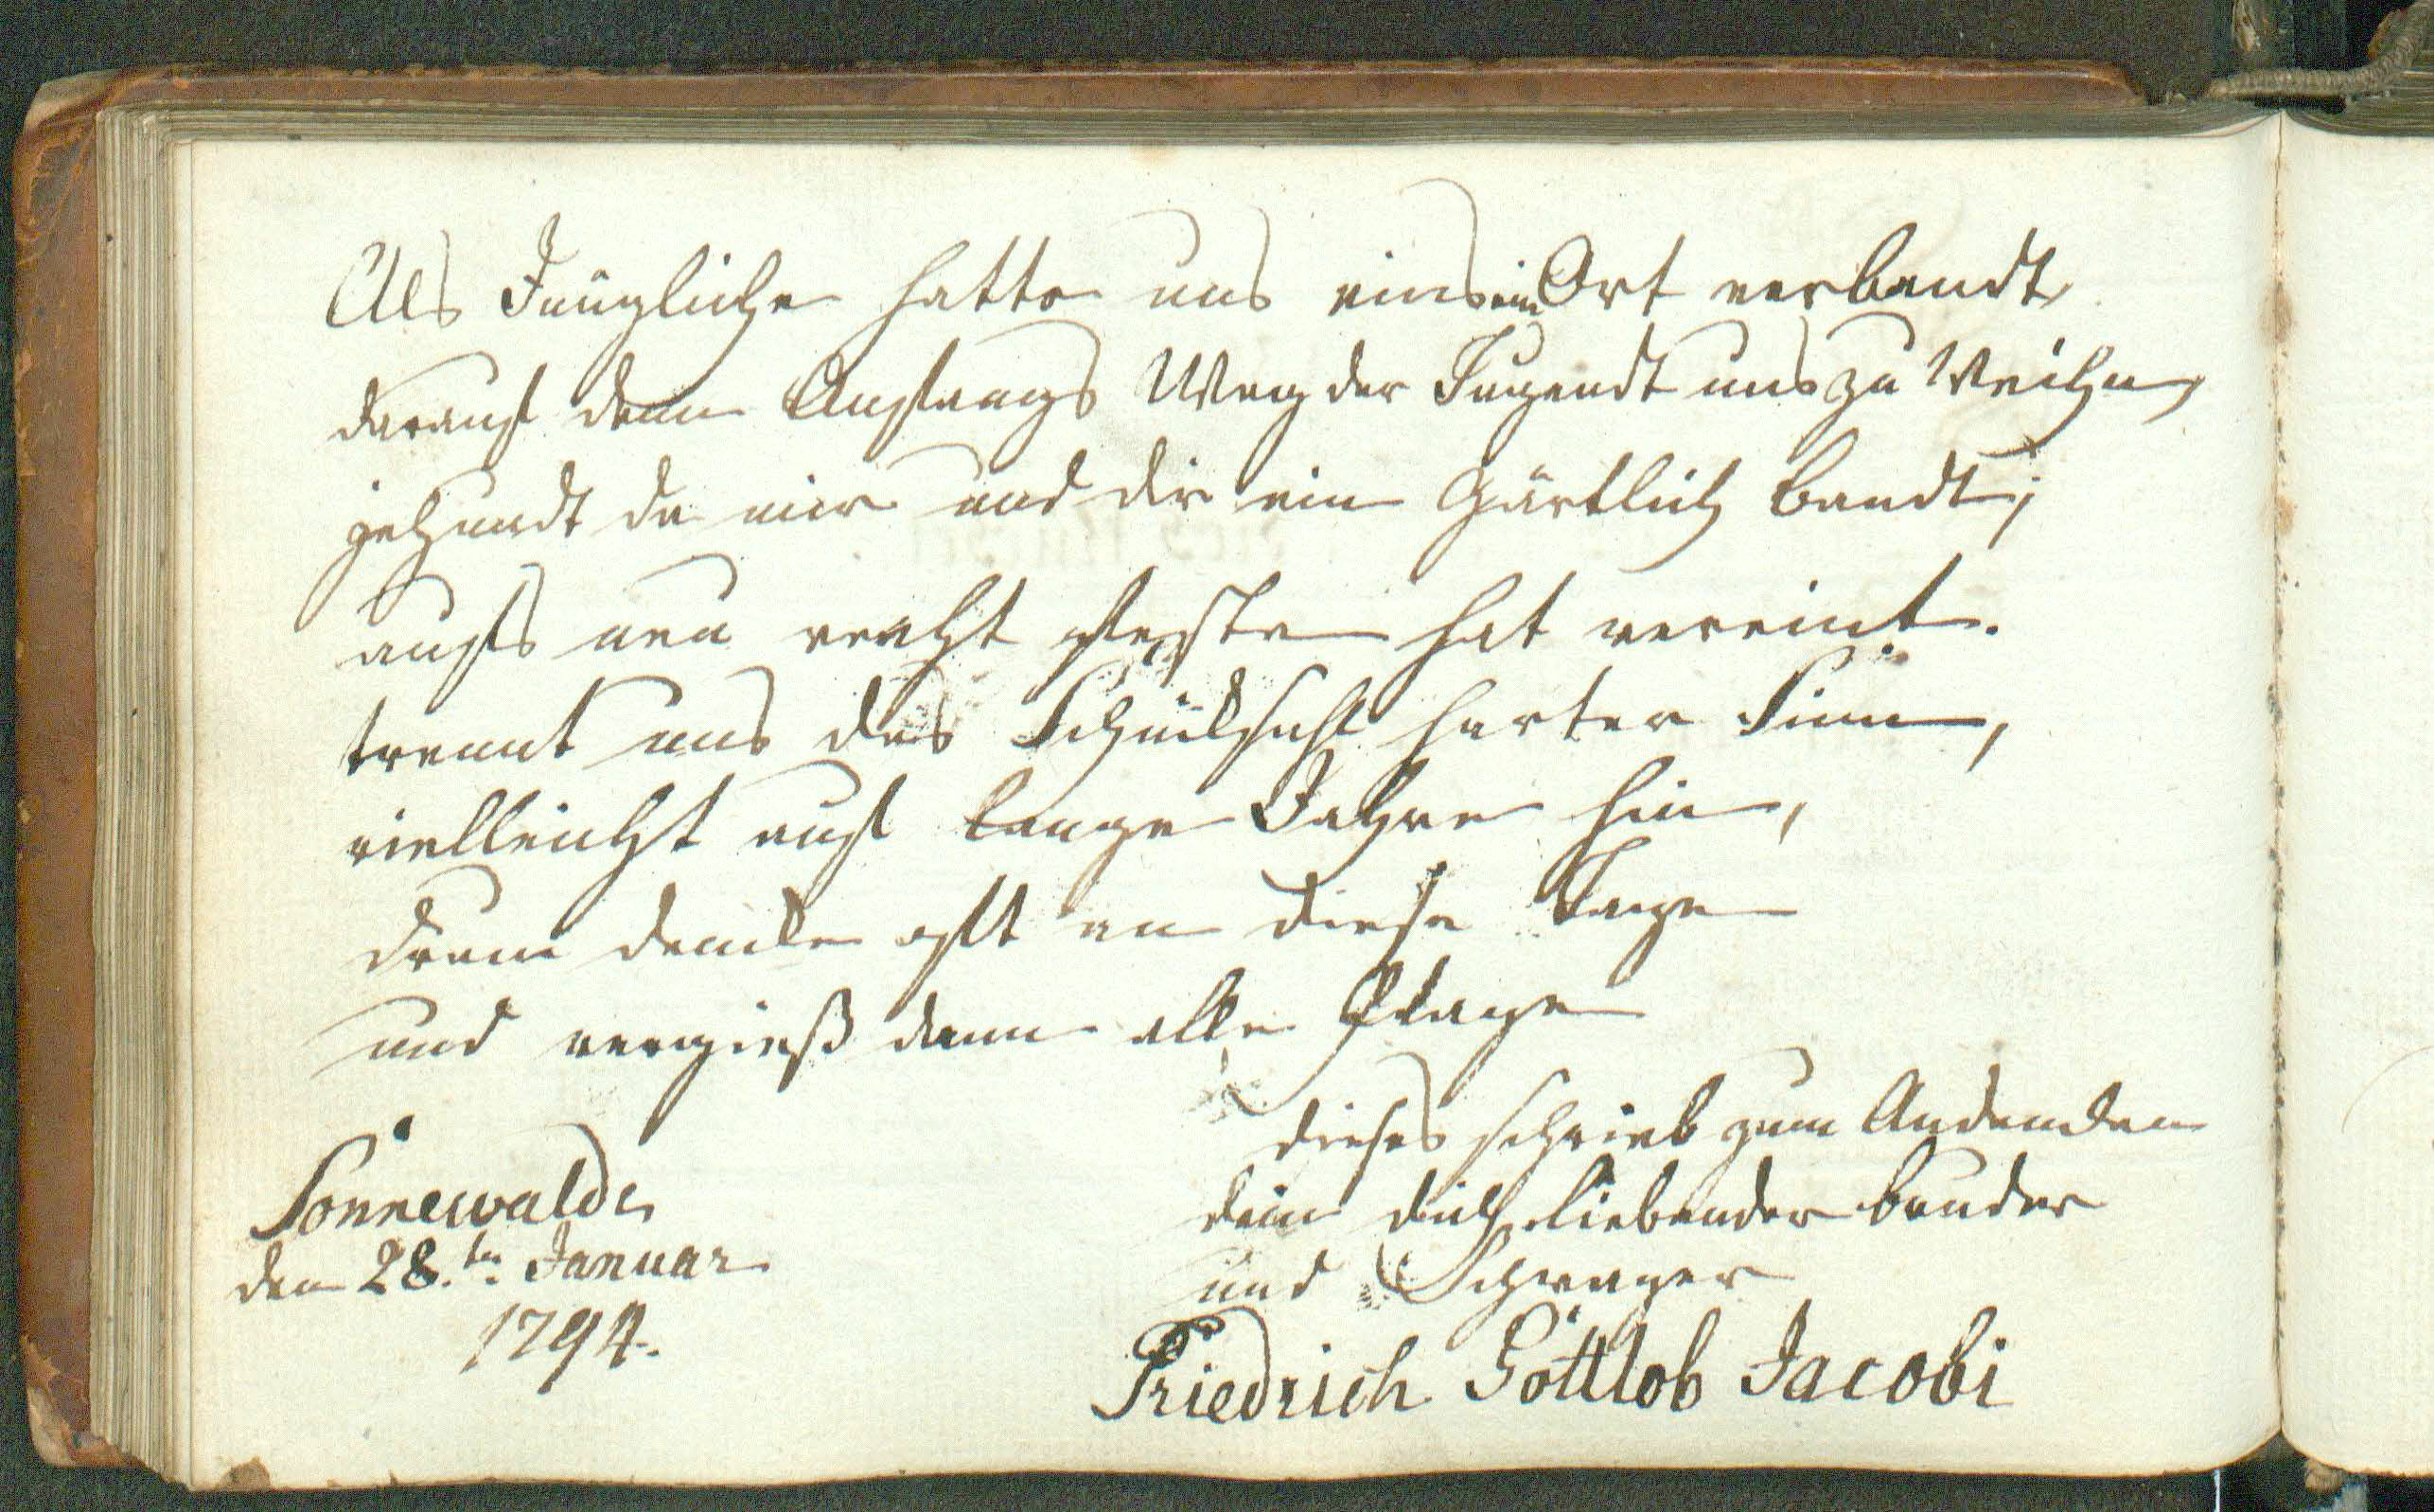 Als Jüngliche hatte uns eins ein Ort verbandt,
darauf denn Anfangs Weg der Tugendt uns zu Weihn,
jetzundt da mir und dir ein Zärtlich bandt;
aufs neu recht feste hat vereint.
trennt uns des Schicksahl harter Sinn,
vielleicht auf lange Jahre hin,
drum dencke oft an diese Tage
und vergieß dann alle Plage
dieses schrieb zum Andencken
dein dich liebender bruder
und Schwager
Friedrich Gottlob Jacobi
Sonnewalde
den 28.ten Januar
1794.